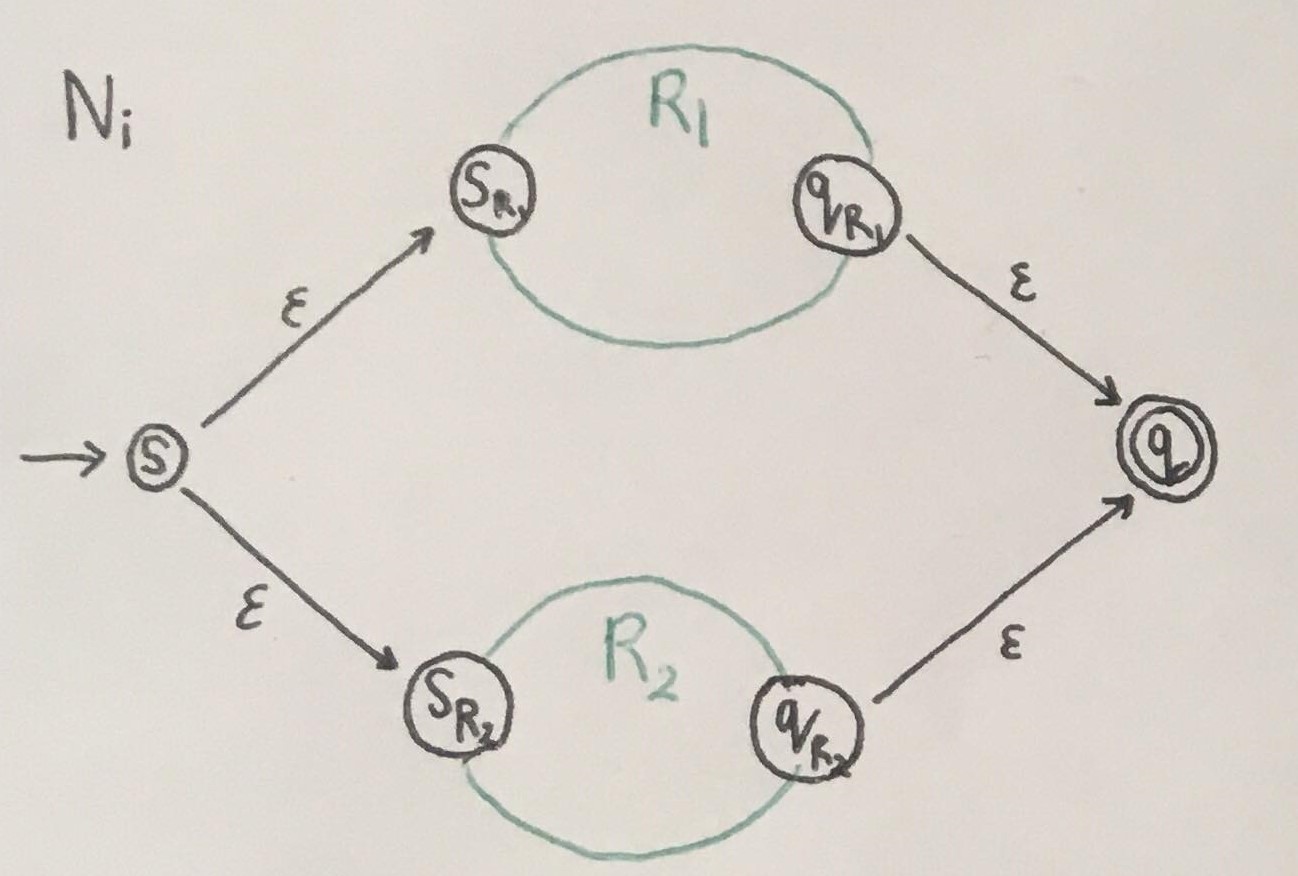 Nᵢ
R₁
S_R₁ q_R₁
ε ε
S q
ε ε
R₂
S_R₂ q_R₂